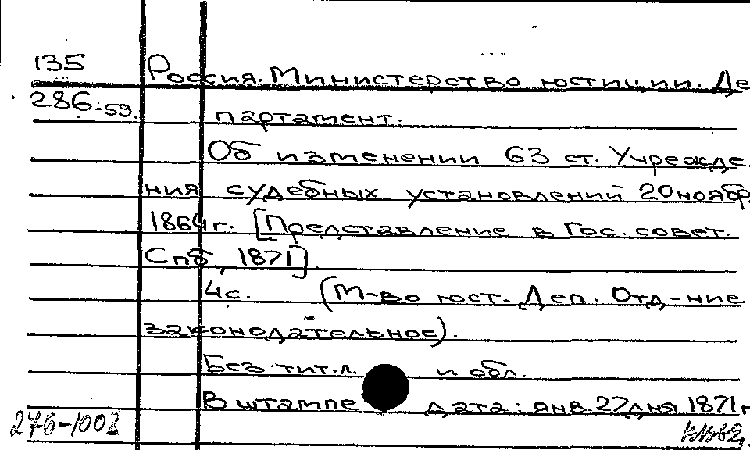 135 Россия. Министерство юстиции. Де
286-59. партамент.
Об изменении 63 ст. Учрежде
ния судебных установлений 20 нояб
1864 г. [Представление в Гос. совет.
Спб, 1871].
4 с. (М-во юст. Деп. Отд-ние
законодательное).
Без тит. л. и обл.
В штампе дата: янв. 27 дня 1871 г
276-1002